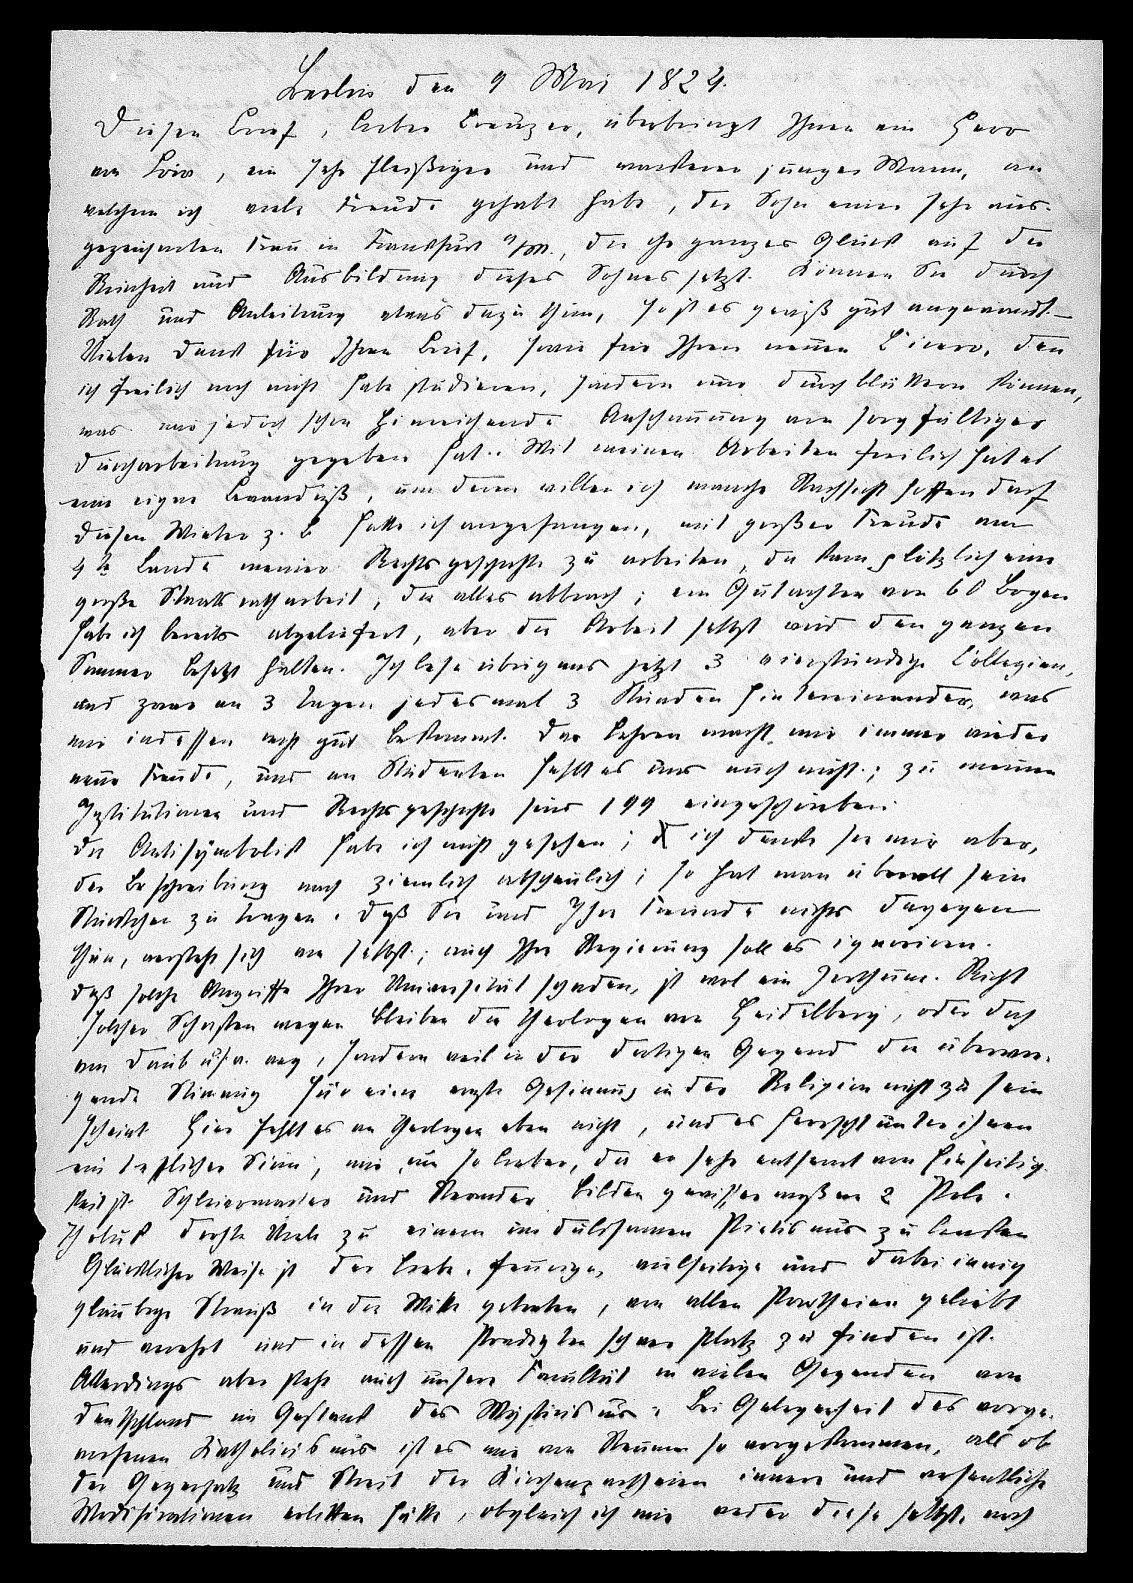 Berlin den 9 Mai 1824.
Diesen Brief, lieber Creuzer, überbringt Ihnen ein Herr
von Löw, ein sehr fleißiger und wackerer junger Mann, an
welchem ich viele Freude gehabt habe, der Sohn einer sehr aus-
gezeichneten Frau in Frankfurt a/M., die ihr ganzes Glück auf die
Reinheit und Ausbildung dieses Sohnes setzt. Können Sie durch
Rath und Anleitung etwas dazu thun, so ist es gewiß gut angewandt.—
Vielen Dank für Ihren Brief, sowie für Ihren neuen Cicero, den
ich freilich noch nicht habe studieren, sondern nur durchblättern können,
was mir jedoch schon hinreichende Anschauung von sorgfältiger
Durcharbeitung gegeben hat. Mit meinen Arbeiten freilich hat es
eine eigene Bewandniß, um deren willen ich manche Nachsicht hoffen darf
Diesen Winter z. B hatte ich angefangen, mit großer Freude am
4te Bande meiner Rechtsgeschichte zu arbeiten, da kam plötzlich eine
große Staatsrathsarbeit, die alles abbrach; ein Gutachten von 60 Bogen
habe ich bereits abgeliefert, aber die Arbeit selbst wird den ganzen
Sommer besetzt halten. Ich lese übrigens jetzt 3 vierstündige Collegien,
und zwar an 3 Tagen jedesmal 3 Stunden hintereinander, was
mir indessen recht gut bekommt. Das Lehren macht mir immer wieder
neue Freude, und an Studenten fehlt es uns auch nicht; zu meinen
Institutionen und Rechtsgeschichte sind 199 eingeschrieben.
Die Antisymbolik habe ich nicht gesehen; ich denke sie mir aber,
der Beschreibung nach ziemlich abscheulich; so hat man überall sein
Stückchen zu tragen. Daß Sie und Ihre Freunde nichts dagegen
thun, versteht sich von selbst; auch Ihre Regierung soll es ignoriren.
Daß solche Angriffe Ihrer Universität schaden, ist wol ein Irrthum. Nicht
solcher Schriften wegen bleiben die Theologen von Heidelberg, oder doch
von Daub u. s. w. weg, sondern weil in der dortigen Gegend die überwie-
gende Stimmung für eine ernste Gesinnung in der Religion nicht zu sein
scheint. Hier fehlt es an Theologen eben nicht, und es herrscht unter ihnen
ein trefflicher Sinn, mir um so lieber, da er sehr entfernt von Einseitig-
keit ist. Schleiermacher und Neander bilden gewissermaßen 2 Pole.
Tholuk dachte Viele zu einem unduldsamen Pietismus zu lenken
Glücklicher Weise ist der liebe, feurige, vielseitige und dabei innig
gläubige Strauß in die Mitte getreten, von allen Partheien geliebt
und verehrt und in dessen Predigten schwer Platz zu finden ist.
Allerdings aber steht auch unsere Facultät in vielen Gegenden von
Deutschland im Gestank des Mysticismus. Bei Gelegenheit des vorge-
worfenen Katholicismus ist es mir von Neuem so vorgekommen, als ob
der Gegensatz und Streit der Kirchenpartheien innere und wesentliche
Modificationen erlitten hätte, obgleich ich mir weder diese selbst, noch